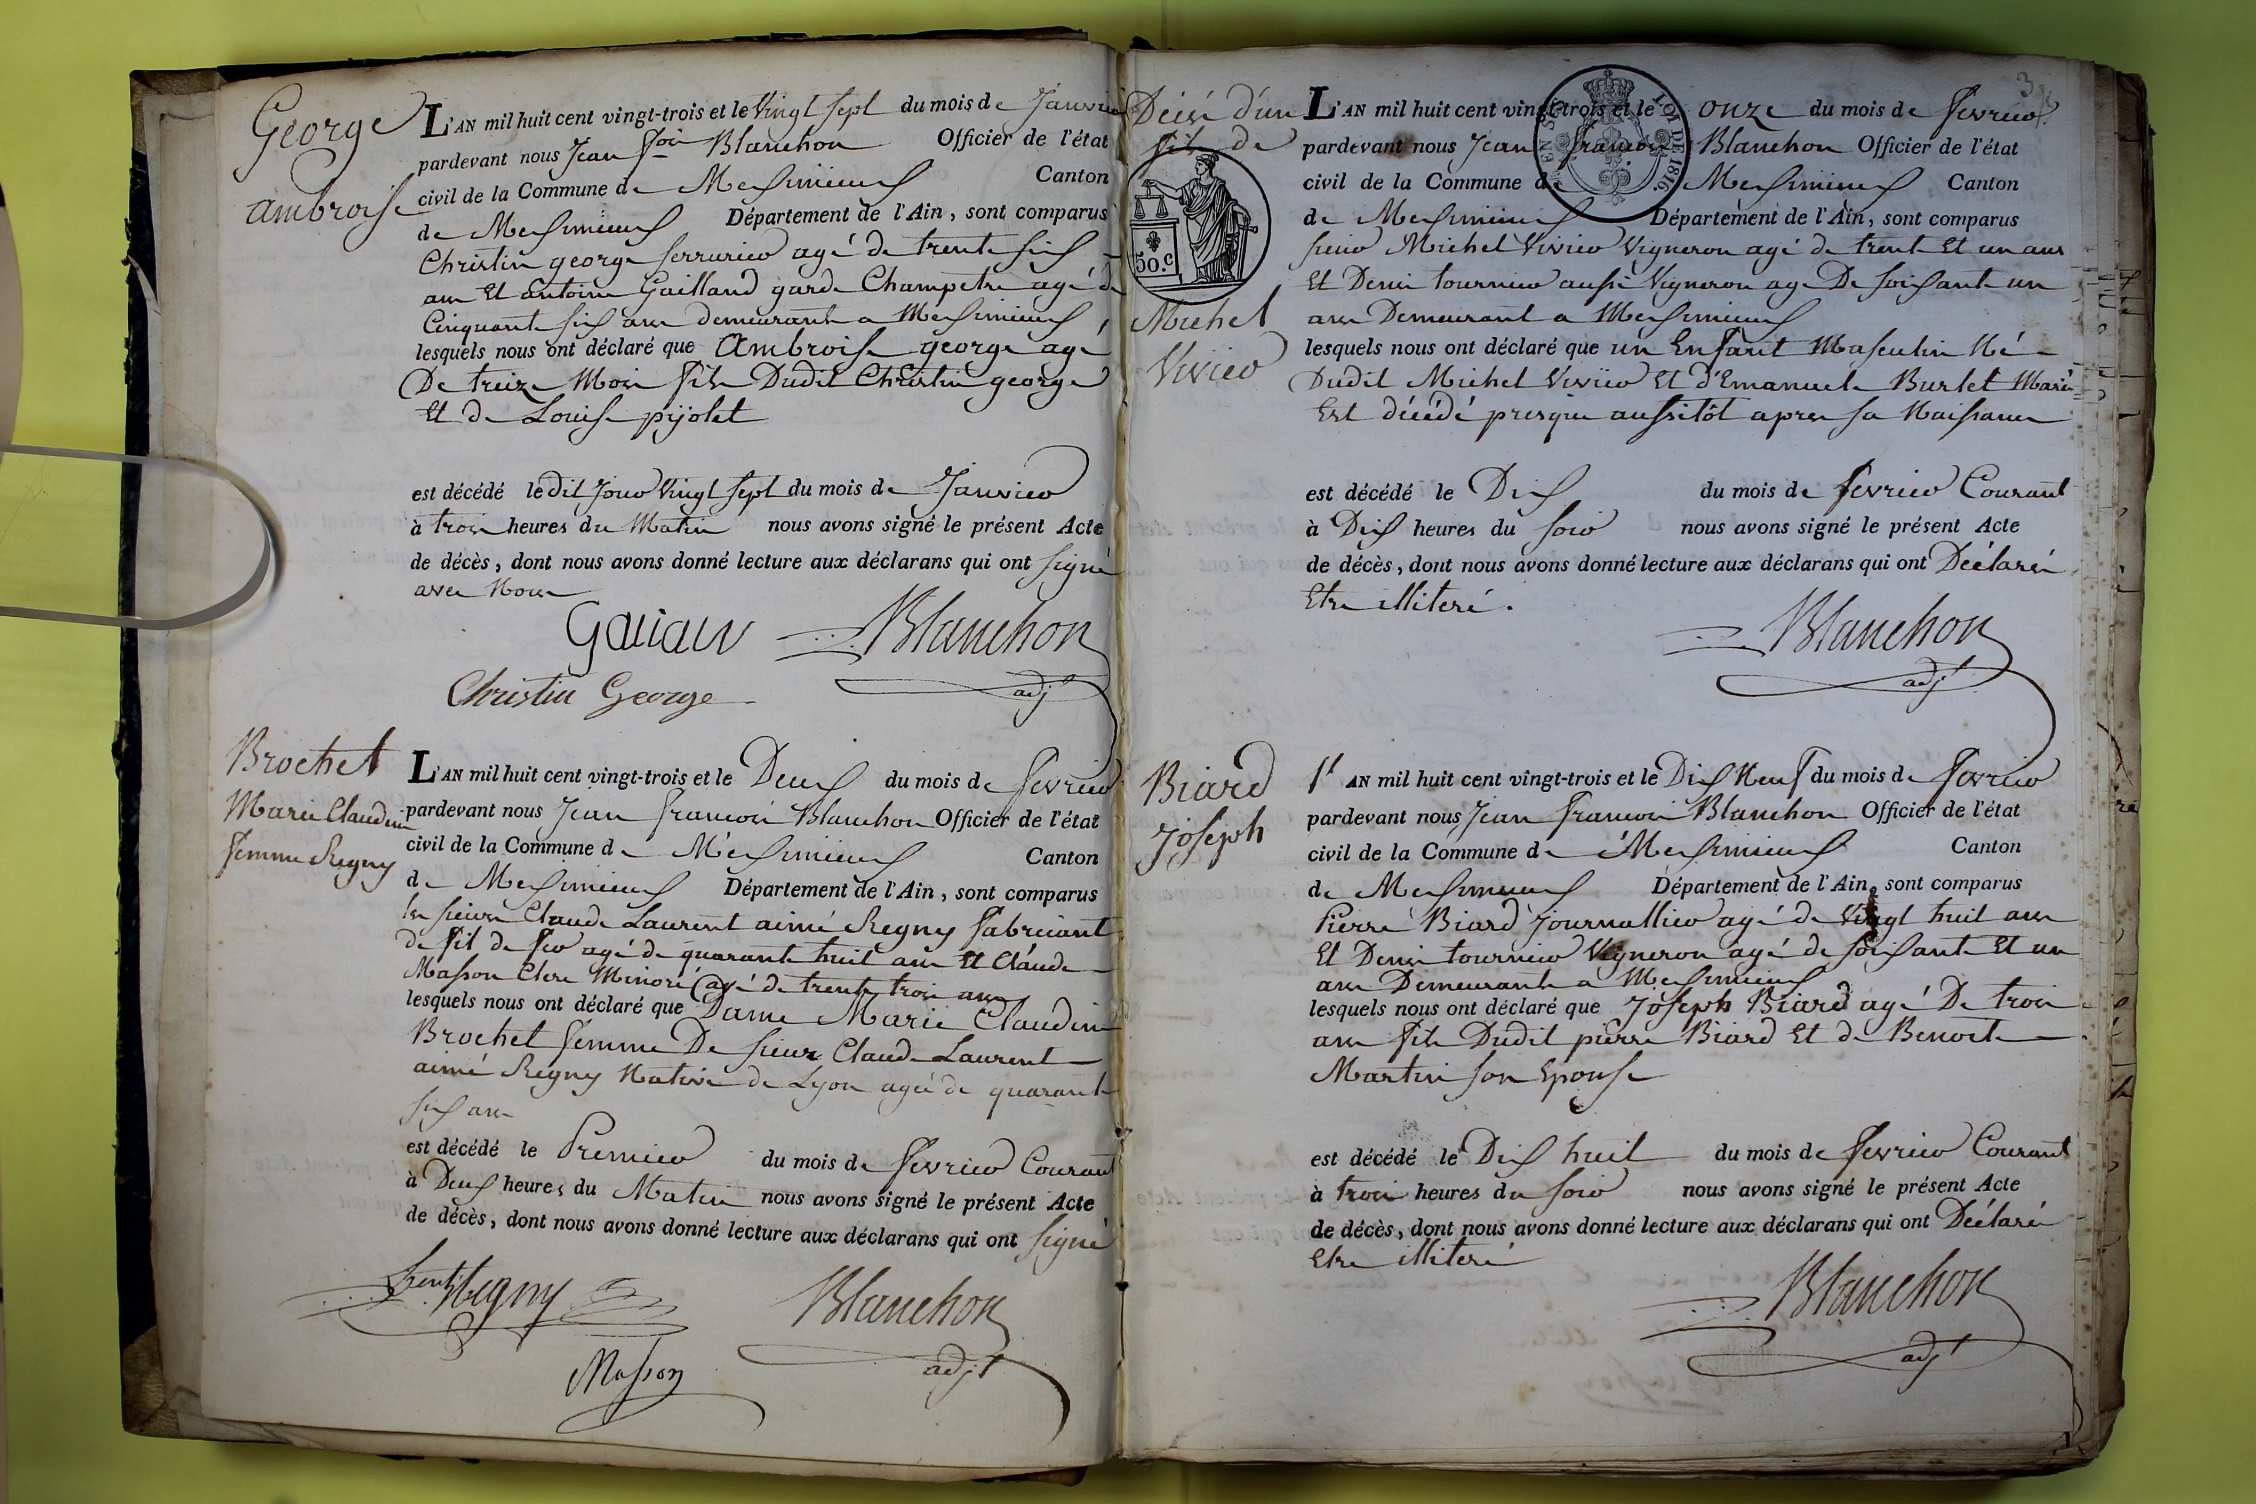 George
Ambroise
L'AN mil huit cent vingt-trois et le Vingt Sept du mois de Janvier
pardevant nous Jean fois Blanchon Officier de l'état
civil de la Commune de Meximieux Canton
de Meximieux Département de l'Ain, sont comparus
Christin george serrurier agé de trente six
ans Et antoine Gailland garde Champetre agé de
Cinquante six ans demeurants a Meximieux,
lesquels nous ont déclaré que Ambroise george agé
De treize Mois fils Dudit Christin george
Et de Louise pijolet
est décédé le dit Jour Vingt Sept du mois de Janvier
à trois heures du Matin nous avons signé le présent Acte
de décès, dont nous avons donné lecture aux déclarans qui ont signé
avec Nous
Blanchon
adjt
Christin George
Brochet
Marie Claudine
femme Regny
L'AN mil huit cent vingt-trois et le Deux du mois de fevrier
pardevant nous Jean francois Blanchon Officier de l'état
civil de la Commune de Meximieux Canton
de Meximieux Département de l'Ain, sont comparus
les sieurs Claude Laurent aimé Regny fabricant
de fil de fer agé de quarante huit ans Et Claude
Masson Clerc Minoré agé de trente trois ans
lesquels nous ont déclaré que Dame Marie Claudine
Brochet femme De sieur Claude Laurent
aimé Regny Native de Lyon agée de quarante
six ans
est décédé le Premier du mois de fevrier Courant
à Deux heures du Matin nous avons signé le présent Acte
de décès, dont nous avons donné lecture aux déclarans qui ont signé
Regny Blanchon
Masson adjt
3
Décès d'un
fils de
50.c
Michel
Vivier
LOI DE 1816
L'AN mil huit cent vingt-trois et le onze du mois de fevrier
pardevant nous Jean francois Blanchon Officier de l'état
civil de la Commune de Meximieux Canton
de Meximieux Département de l'Ain, sont comparus
sieur Michel Vivier Vigneron agé de trente Et un ans
Et Denis tournier aussi Vigneron agé De soixante un
ans Demeurants a Meximieux
lesquels nous ont déclaré que un Enfant Masculin Né
Dudit Michel Vivier Et d'Emanuele Burlet Mariés
Est décédé presque aussitôt apres sa Naissance
est décédé le Dix du mois de fevrier Courant
à Dix heures du soir nous avons signé le présent Acte
de décès, dont nous avons donné lecture aux déclarans qui ont Déclaré
Etre illiteré.
Blanchon
adjt
Biard
Joseph
l'AN mil huit cent vingt-trois et le Dix Neuf du mois de fevrier
pardevant nous Jean francois Blanchon Officier de l'état
civil de la Commune de Meximieux Canton
de Meximieux Département de l'Ain, sont comparus
Pierre Biard Journallier agé de Vingt huit ans
Et Denis tournier Vigneron agé de soixante Et un
ans Demeurants a Meximieux
lesquels nous ont déclaré que Joseph Biard agé De trois
ans fils Dudit pierre Biard Et de Benoite
Martin son Epouse
est décédé le Dix huit du mois de fevrier Courant
à trois heures du soir nous avons signé le présent Acte
de décès, dont nous avons donné lecture aux déclarans qui ont Déclaré
Etre illiteré
Blanchon
adjt